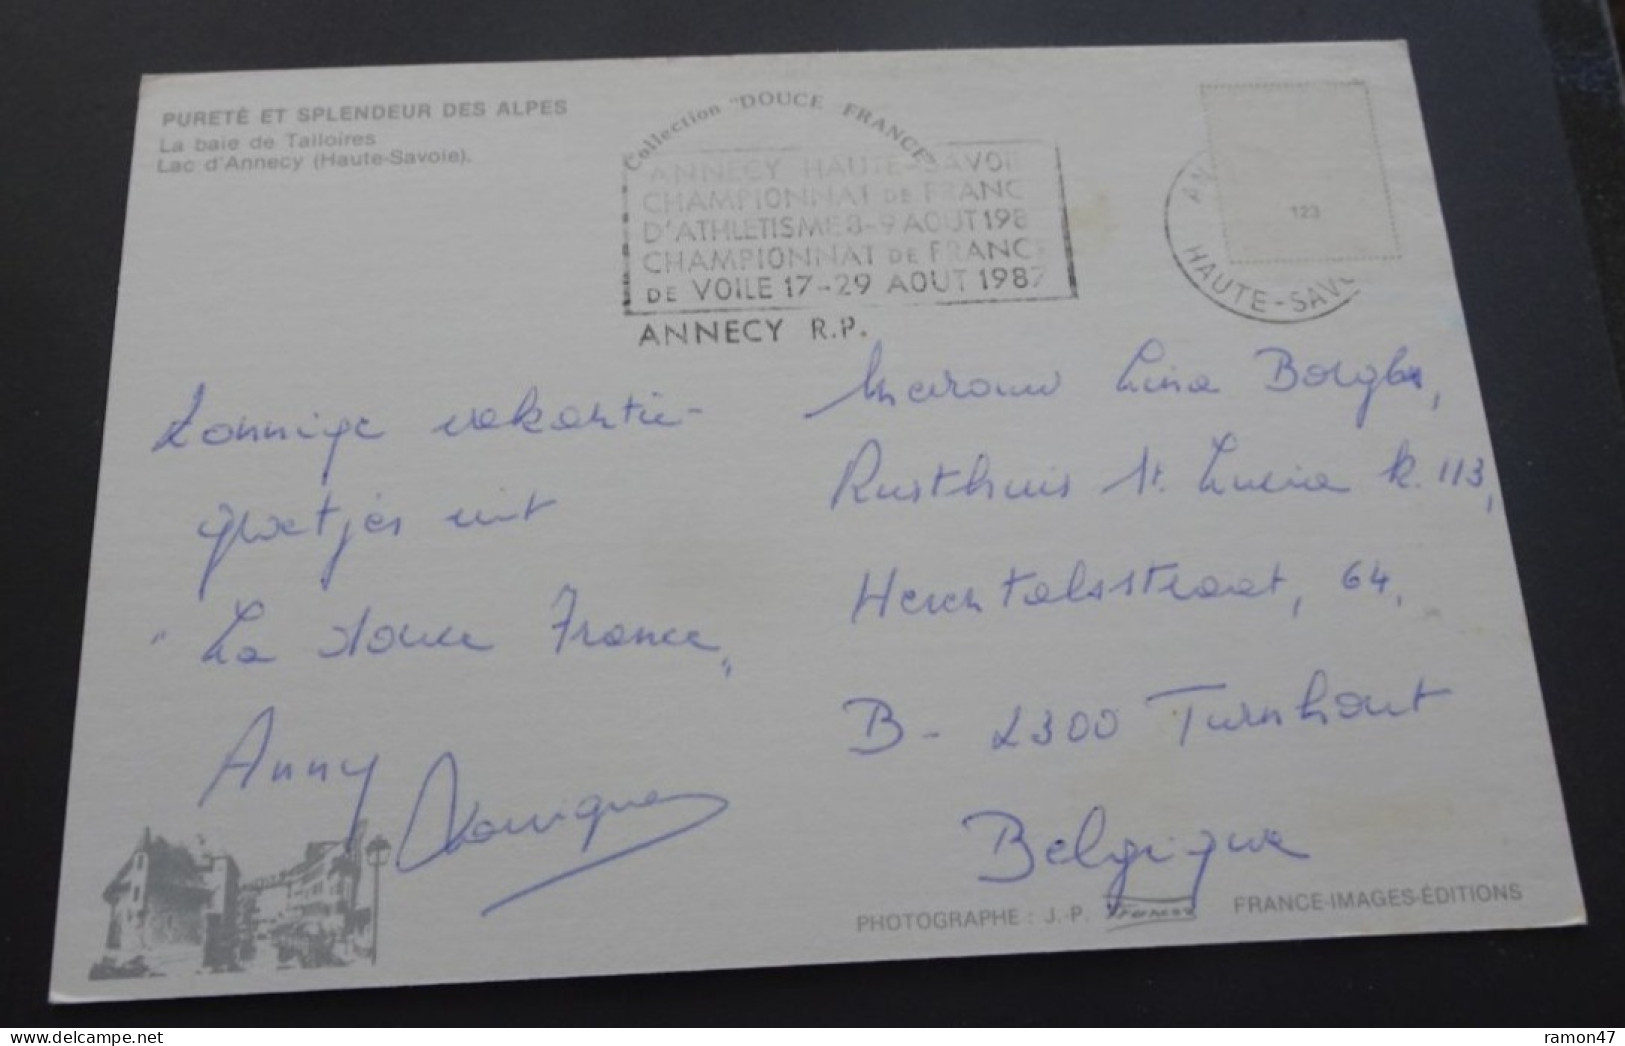 PURETÉ ET SPLENDEUR DES ALPES
La baie de Talloires
Lac d'Annecy (Haute-Savoie).
Collection "DOUCE FRANCE"
ANNECY HAUTE-SAVOIE
CHAMPIONNAT DE FRANC
D'ATHLETISME 8-9 AOUT 198
CHAMPIONNAT DE FRANC
DE VOILE 17-29 AOUT 1987
ANNECY R.P.
HAUTE-SAVO
123
Zonnige vakantie-
groetjes uit
"La douce France"
Anny
Mevrouw Lina
Rusthuis St. Lucia k. 113,
Herentalsstraat, 64,
B - 2300 Turnhout
Belgique
PHOTOGRAPHE : J.-P.
FRANCE-IMAGES-ÉDITIONS
ramon47